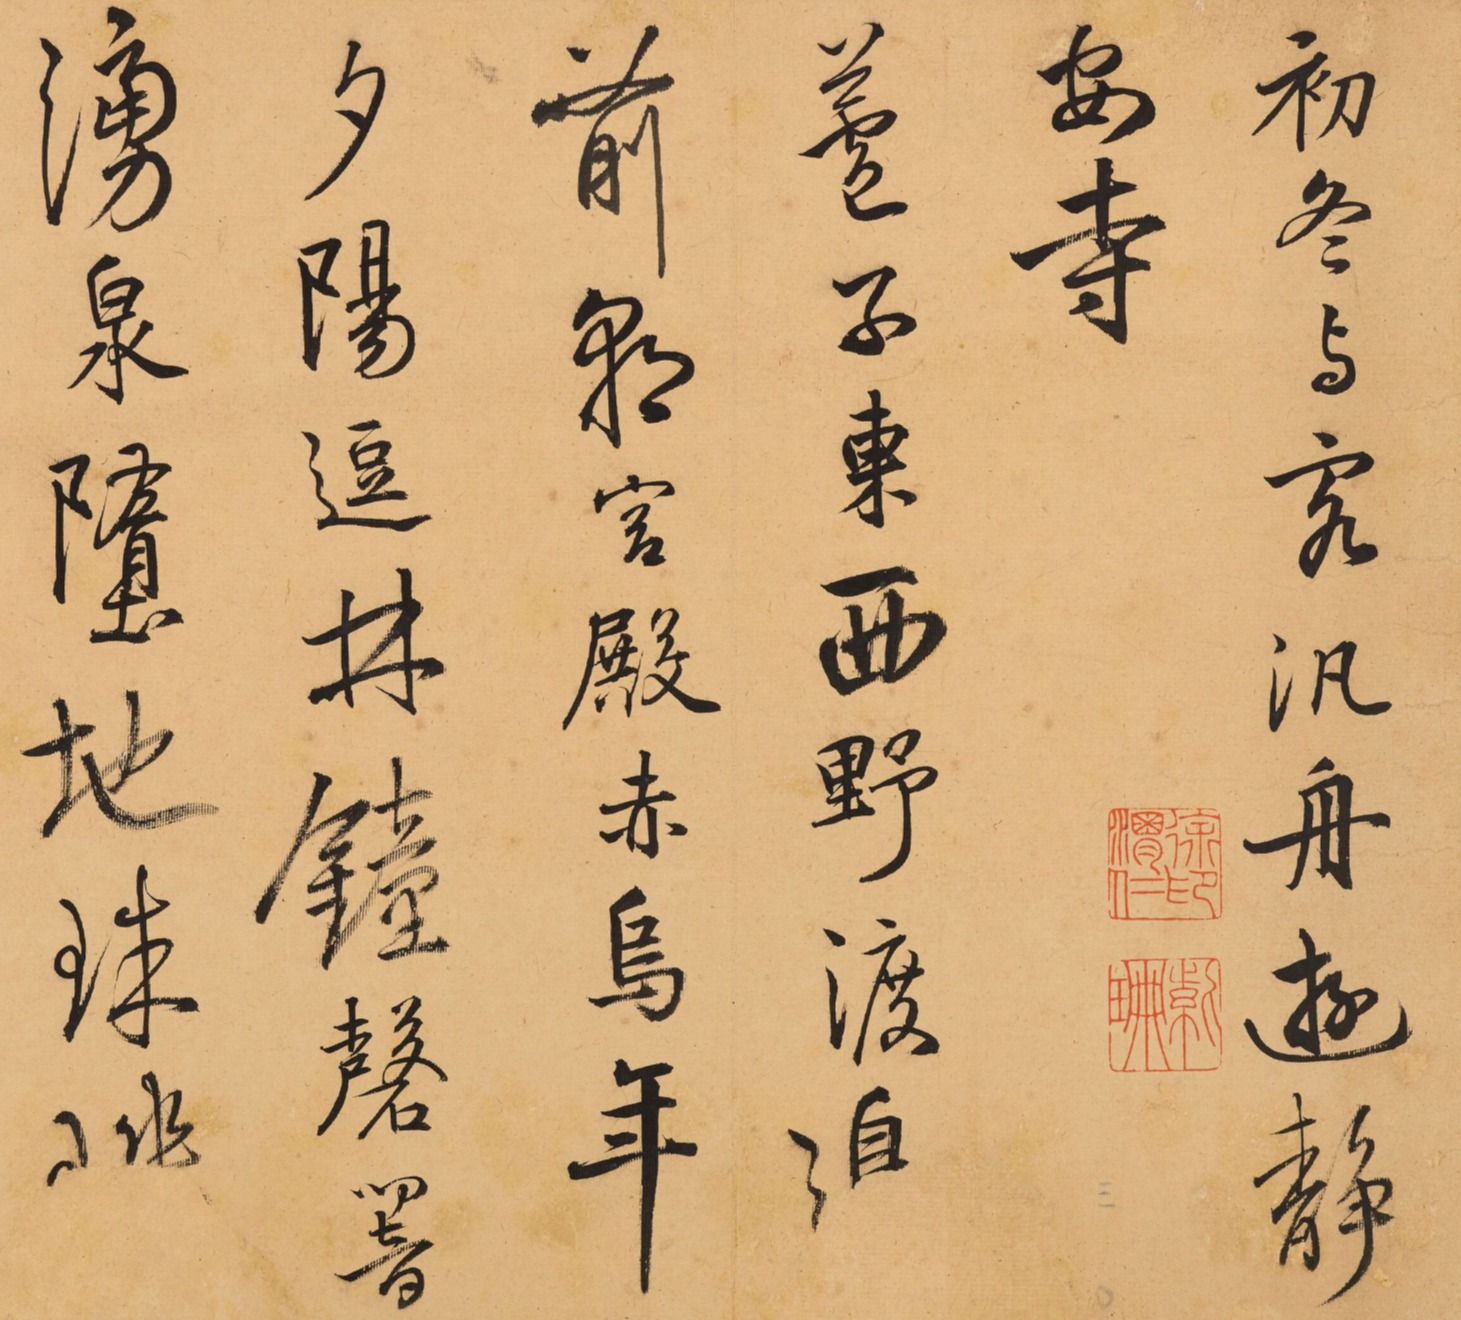 初冬与客汎舟遊静
安寺
蘆子東西野渡洎
前朝宮殿赤烏年
夕陽逗林鐘磬
湧泉墮地珠琲
徐印渭仁
紫珊